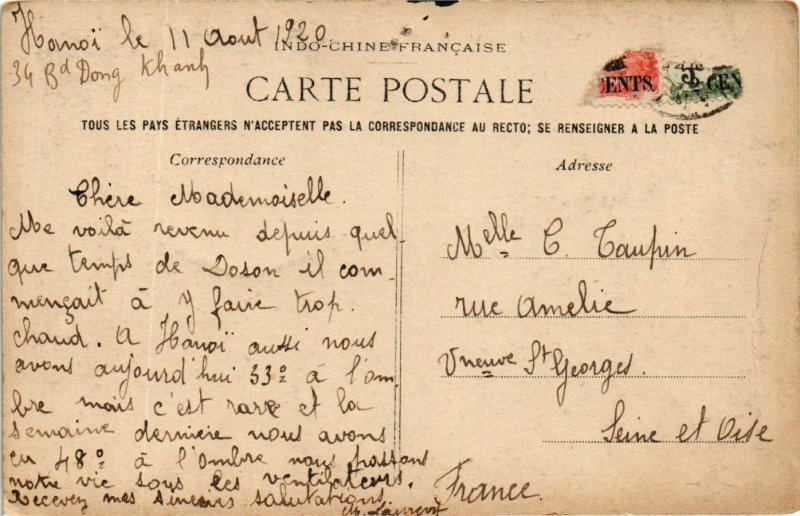 Hanoï le 11 Aout 1920
34 Bd Dong Khanh
INDO-CHINE FRANÇAISE
CARTE POSTALE
ENTS
5 CEN
TOUS LES PAYS ÉTRANGERS N'ACCEPTENT PAS LA CORRESPONDANCE AU RECTO; SE RENSEIGNER A LA POSTE
Correspondance
Chère Mademoiselle.
Me voilà revenu depuis quel-
que temps de Doson il com-
mençait à y faire trop
chaud. A Hanoï aussi nous
avons aujourd'hui 33° à l'om-
bre mais c'est rare et la
semaine dernière nous avons
eu 48° à l'ombre nous passons
notre vie sous les ventilateurs.
Recevez mes sincères salutations.
M. Laurent
Adresse
Melle C. Taupin
rue Amelie
Vneuve St Georges.
Seine et Oise
France.